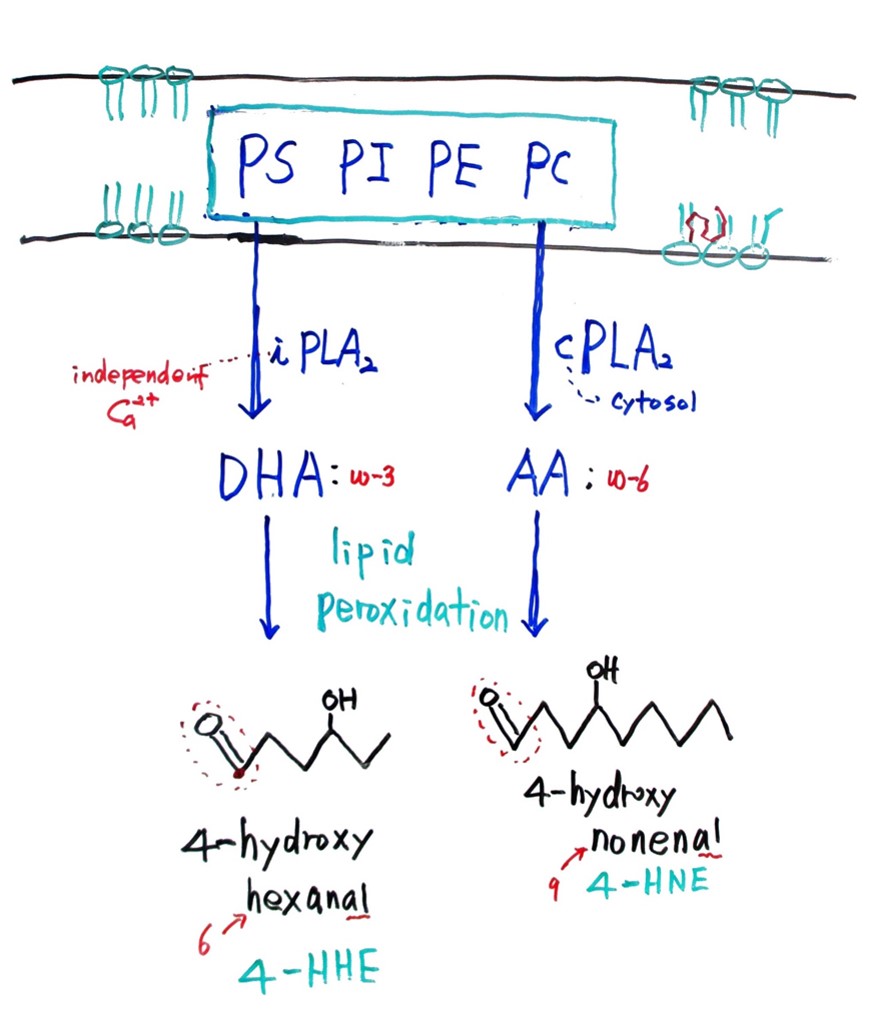 PS PI PE PC
iPLA₂
cPLA₂
independent
Ca²⁺
cytosol
DHA: ω-3
AA: ω-6
lipid
peroxidation
O
OH
4-hydroxy
hexanal
6
4-HHE
O
OH
4-hydroxy
nonenal
9
4-HNE